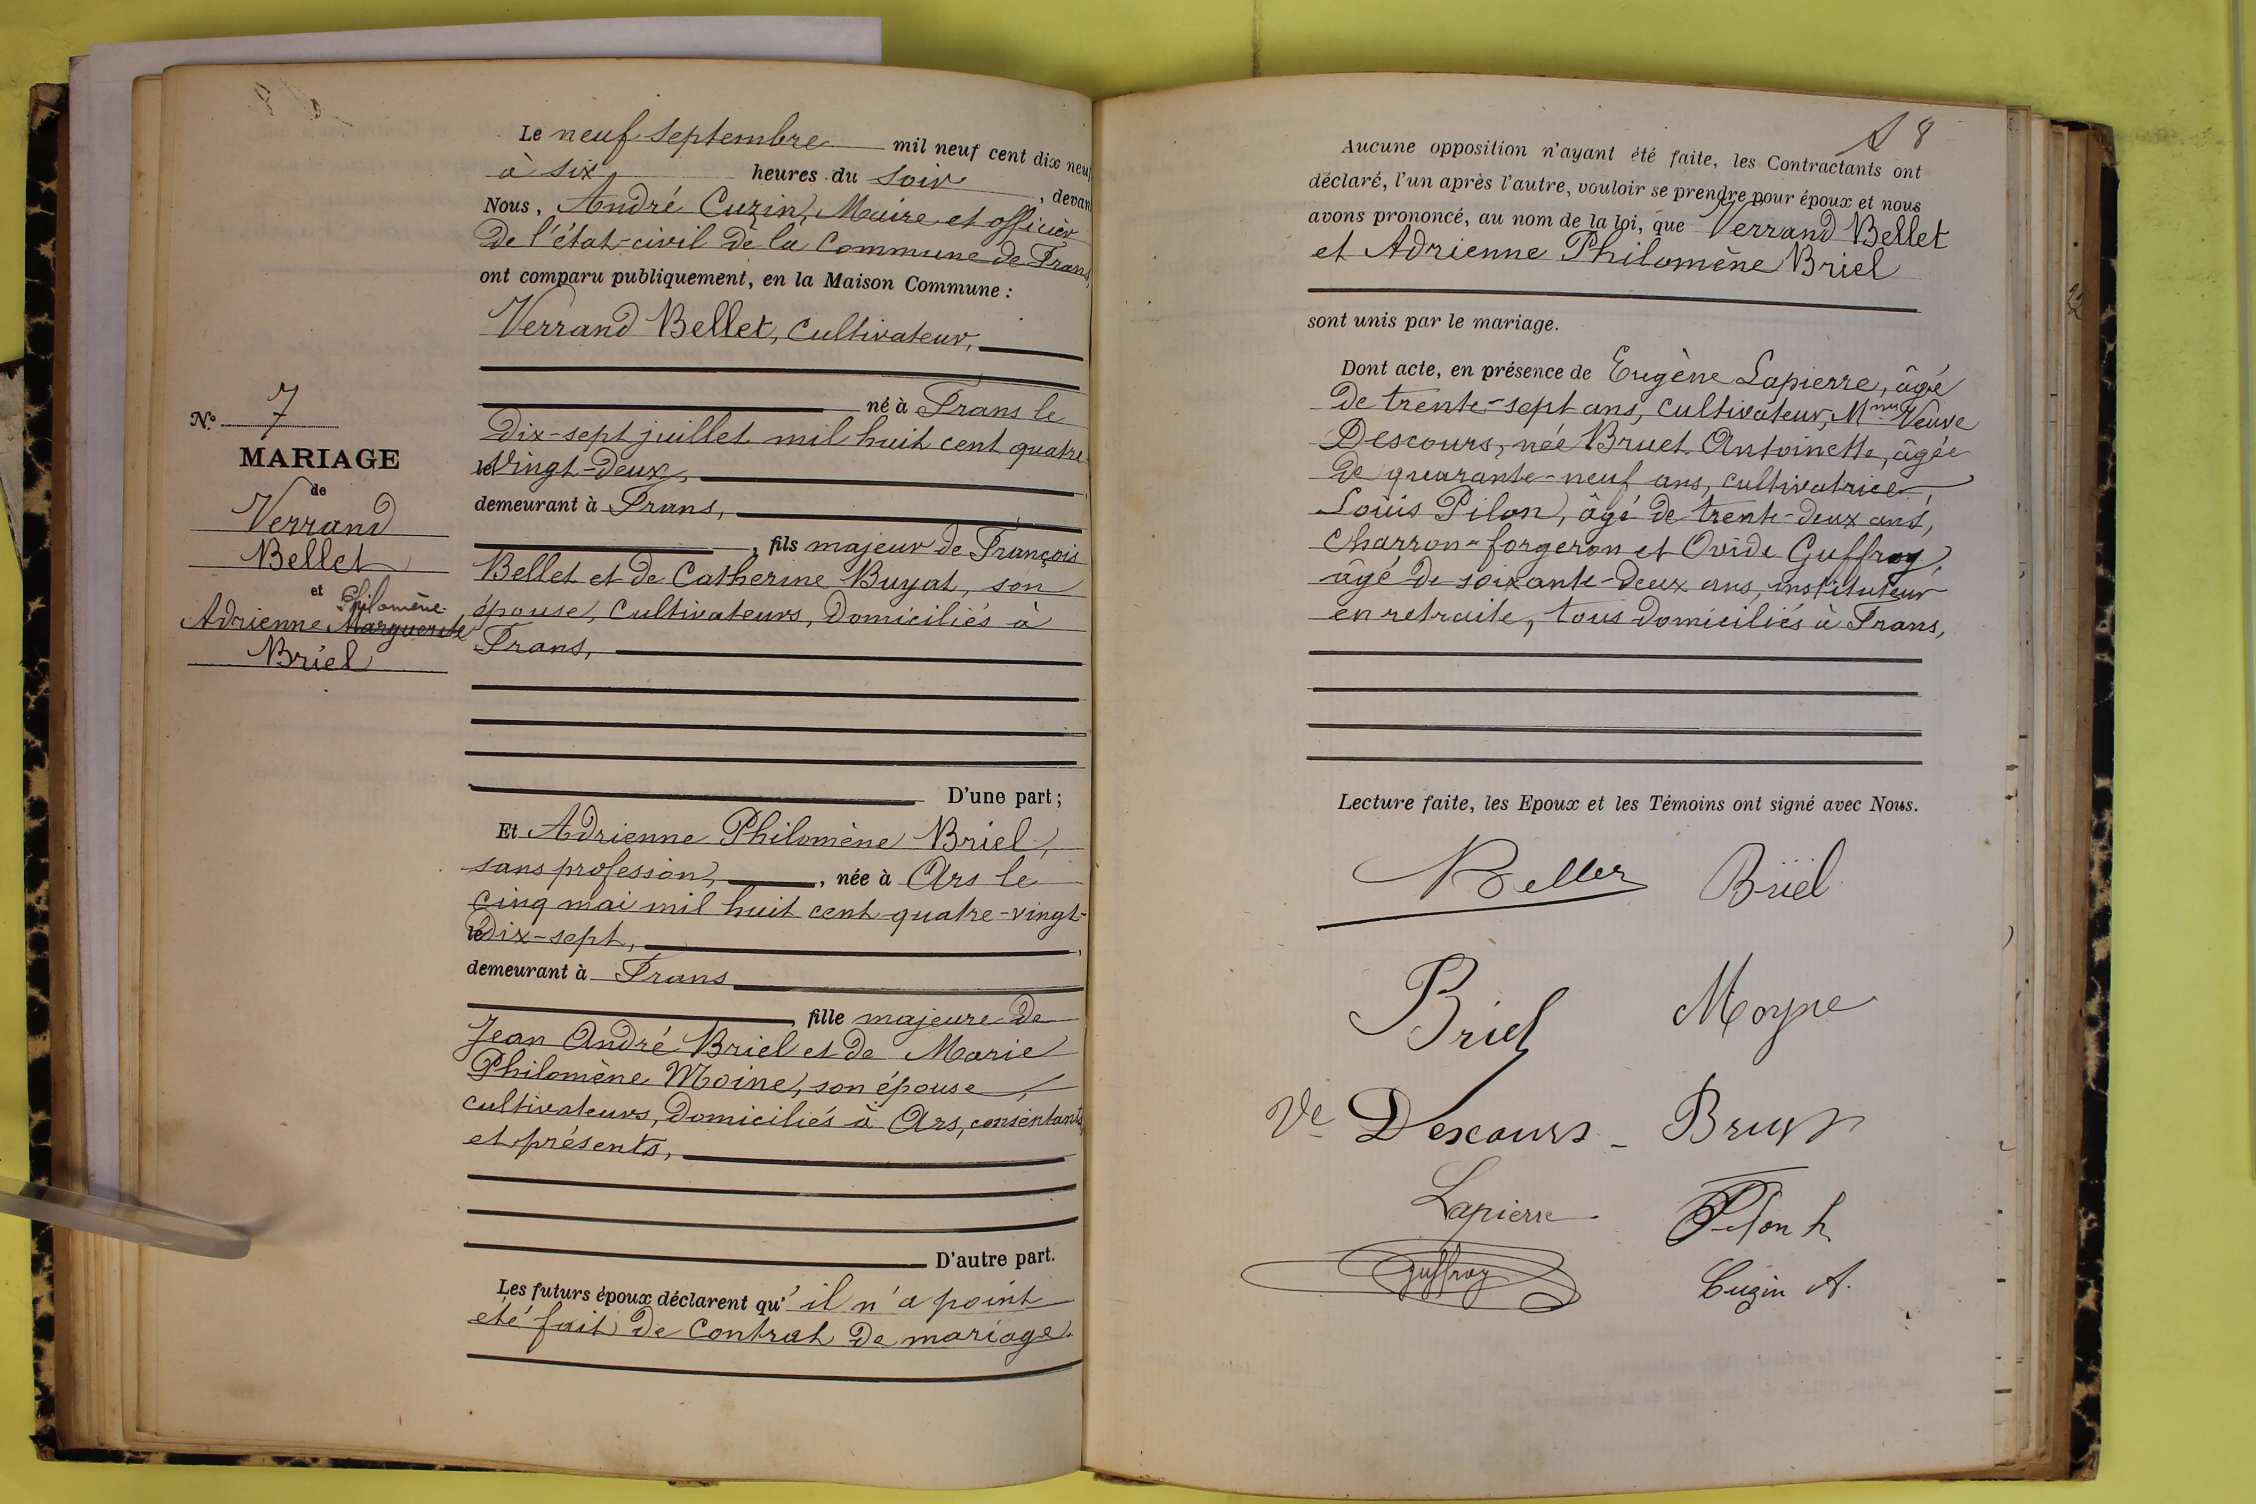 Le neuf septembre mil neuf cent dix neuf
à six heures du soir, devant
Nous, André Cuzin, Maire et officier
de l'état-civil de la commune de Frans,
ont comparu publiquement, en la Maison Commune :
Verrand Bellet, cultivateur,
né à Frans le
dix-sept juillet mil huit cent quatre
le vingt-deux,
demeurant à Frans,
, fils majeur de François
Bellet et de Catherine Buyat, son
épouse, cultivateurs, domiciliés à
Frans,
D'une part ;
Et Adrienne Philomène Briel,
sans profession, , née à Ars le
cinq mai mil huit cent quatre-vingt-
le dix-sept, ,
demeurant à Frans
, fille majeure de
Jean André Briel et de Marie
Philomène Moine, son épouse,
cultivateurs, domiciliés à Ars, consentants
et présents,
D'autre part.
Les futurs époux déclarent qu'il n'a point
été fait de contrat de mariage.
N° 7
MARIAGE
de
Verrand
Bellet
et Philomène
Adrienne Marguerite
Briel
18
Aucune opposition n'ayant été faite, les Contractants ont
déclaré, l'un après l'autre, vouloir se prendre pour époux et nous
avons prononcé, au nom de la loi, que Verrand Bellet
et Adrienne Philomène Briel
sont unis par le mariage.
Dont acte, en présence de Eugène Lapierre, âgé
de trente-sept ans, cultivateur, Mme Veuve
Descours, née Bruet Antoinette, âgée
de quarante-neuf ans, cultivatrice,
Louis Pilon, âgé de trente-deux ans,
charron-forgeron et Ovide Guffroy,
âgé de soixante-deux ans, instituteur
en retraite, tous domiciliés à Frans,
Lecture faite, les Epoux et les Témoins ont signé avec Nous.
Bellet Briel
Briel Moyne
Ve Descours - Bruet
Lapierre Pilon L
Guffroy Cuzin A.